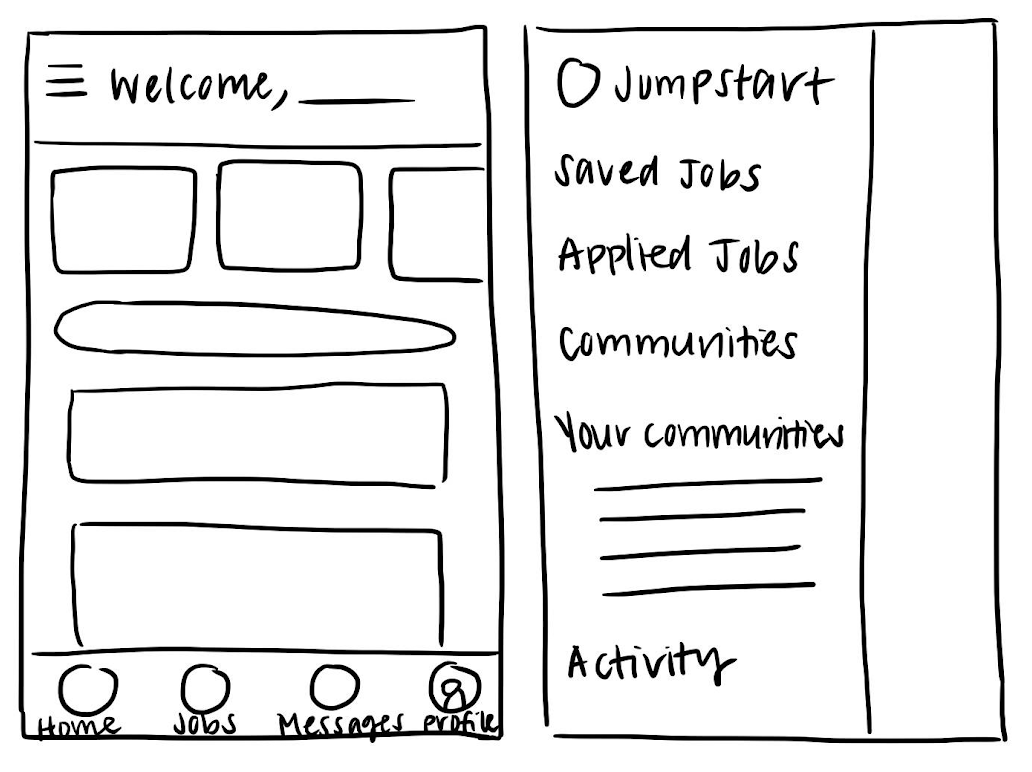 Welcome, ______
Home Jobs Messages Profile
Jumpstart
Saved Jobs
Applied Jobs
Communities
Your communities
Activity